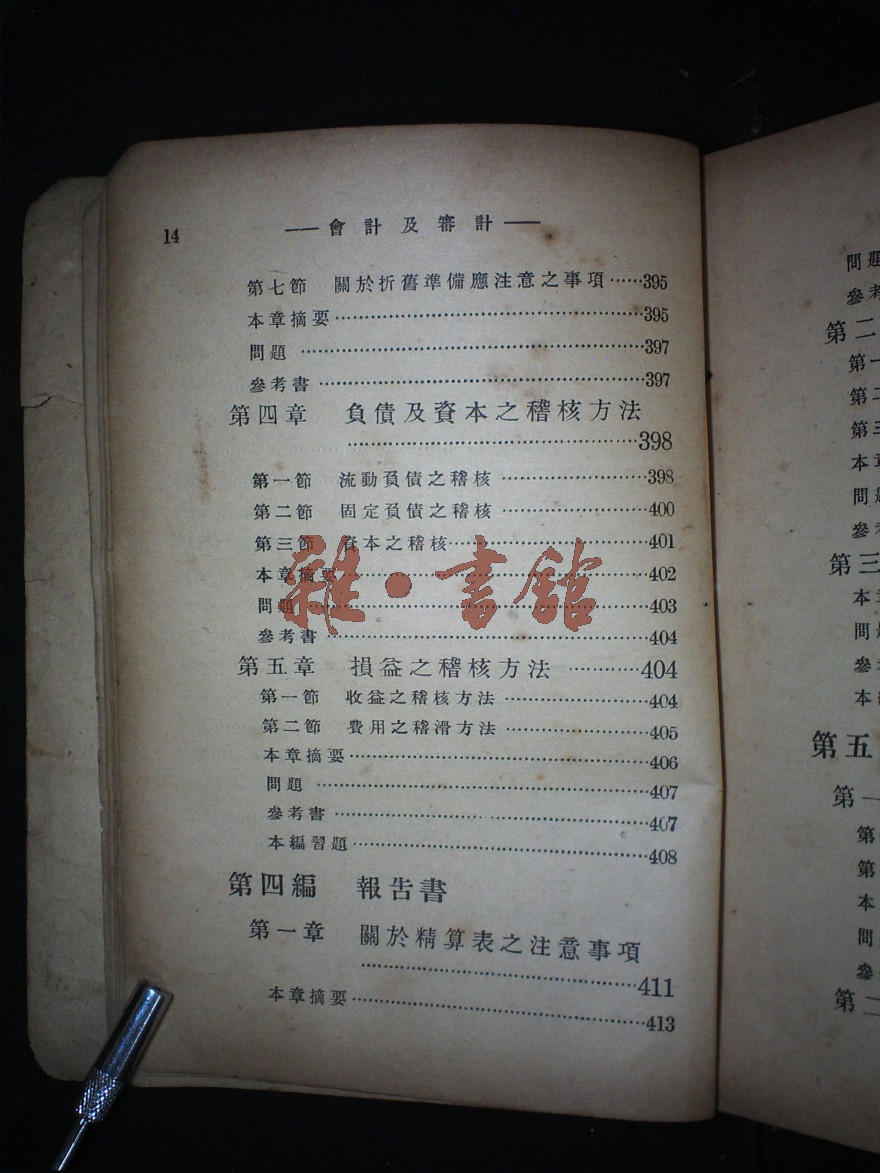 14
——會計及審計——
第七節 關於折舊準備應注意之事項……395
本章摘要……395
問題……397
參考書……397
第四章 負債及資本之稽核方法
……398
第一節 流動負債之稽核……398
第二節 固定負債之稽核……400
第三節 資本之稽核……401
本章摘要……402
問題……403
參考書……404
第五章 損益之稽核方法……404
第一節 收益之稽核方法……404
第二節 費用之稽滑方法……405
本章摘要……406
問題……407
參考書……407
本編習題……408
第四編 報告書
第一章 關於精算表之注意事項
……411
本章摘要……413
雜·書館
問題
參考
第二
第一
第二
第三
本章
問題
參考
第三
本章
問題
參考
本編
第五
第一
第
第
本
問
參
第二